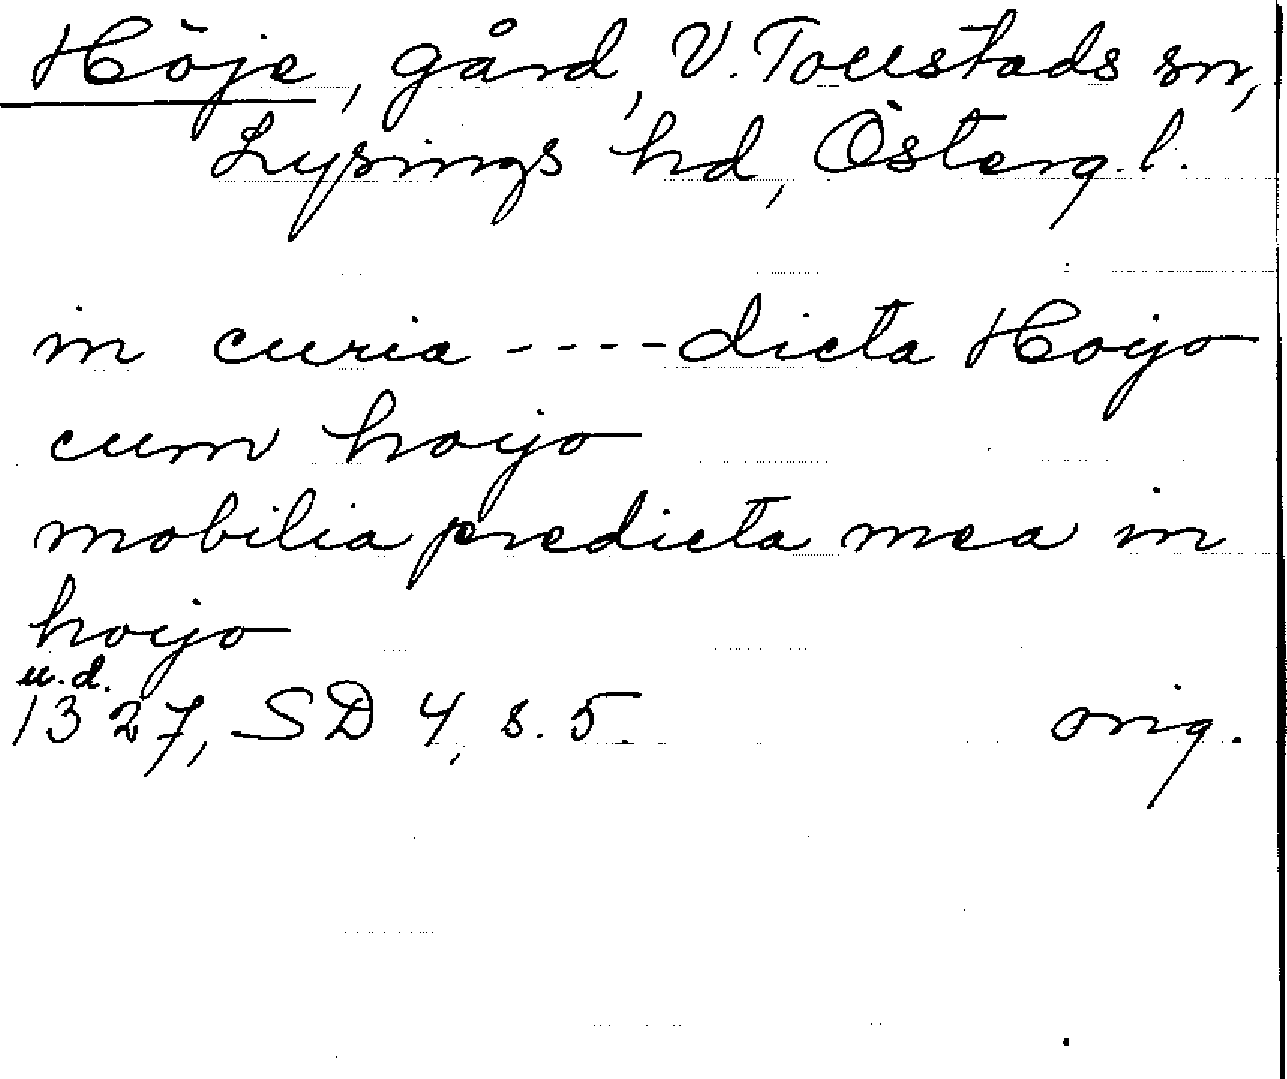 Höje, gård, V. Tollstads sn,
Lysings hd, Österg.l.
in curia ---- dicta Hoijo
cum hoijo
mobilia predicta mea in
hoijo
u.d.
1327, SD 4, s. 5 orig.